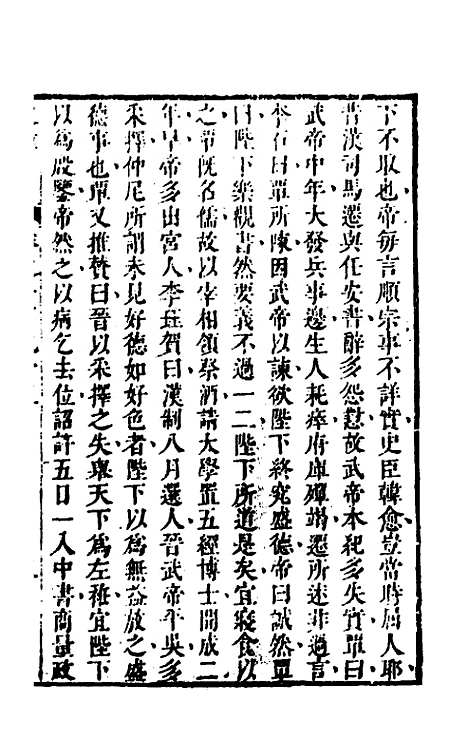 下不取也帝每言順宗事不詳實史臣韓愈豈當時屈人耶
昔漢司馬遷與任安書辭多怨懟故武帝本紀多失實覃曰
武帝中年大發兵事邊生人耗瘁府庫殫竭遷所述非過言
李石曰覃所陳因武帝以諫欲陛下終究盛德帝曰誠然覃
曰陛下樂觀書然要義不過一二陛下所道是矣宜寢食以
之覃既名儒故以宰相領祭酒請太學置五經博士開成二
年旱帝多出宮人李珏賀曰漢制八月選人晉武帝平吳多
采擇仲尼所謂未見好德如好色者陛下以為無益放之盛
德事也覃又推贊曰晉以采擇之失舉天下為左衽宜陛下
以為殷鑒帝然之以病乞去位詔許五日一入中書商量政